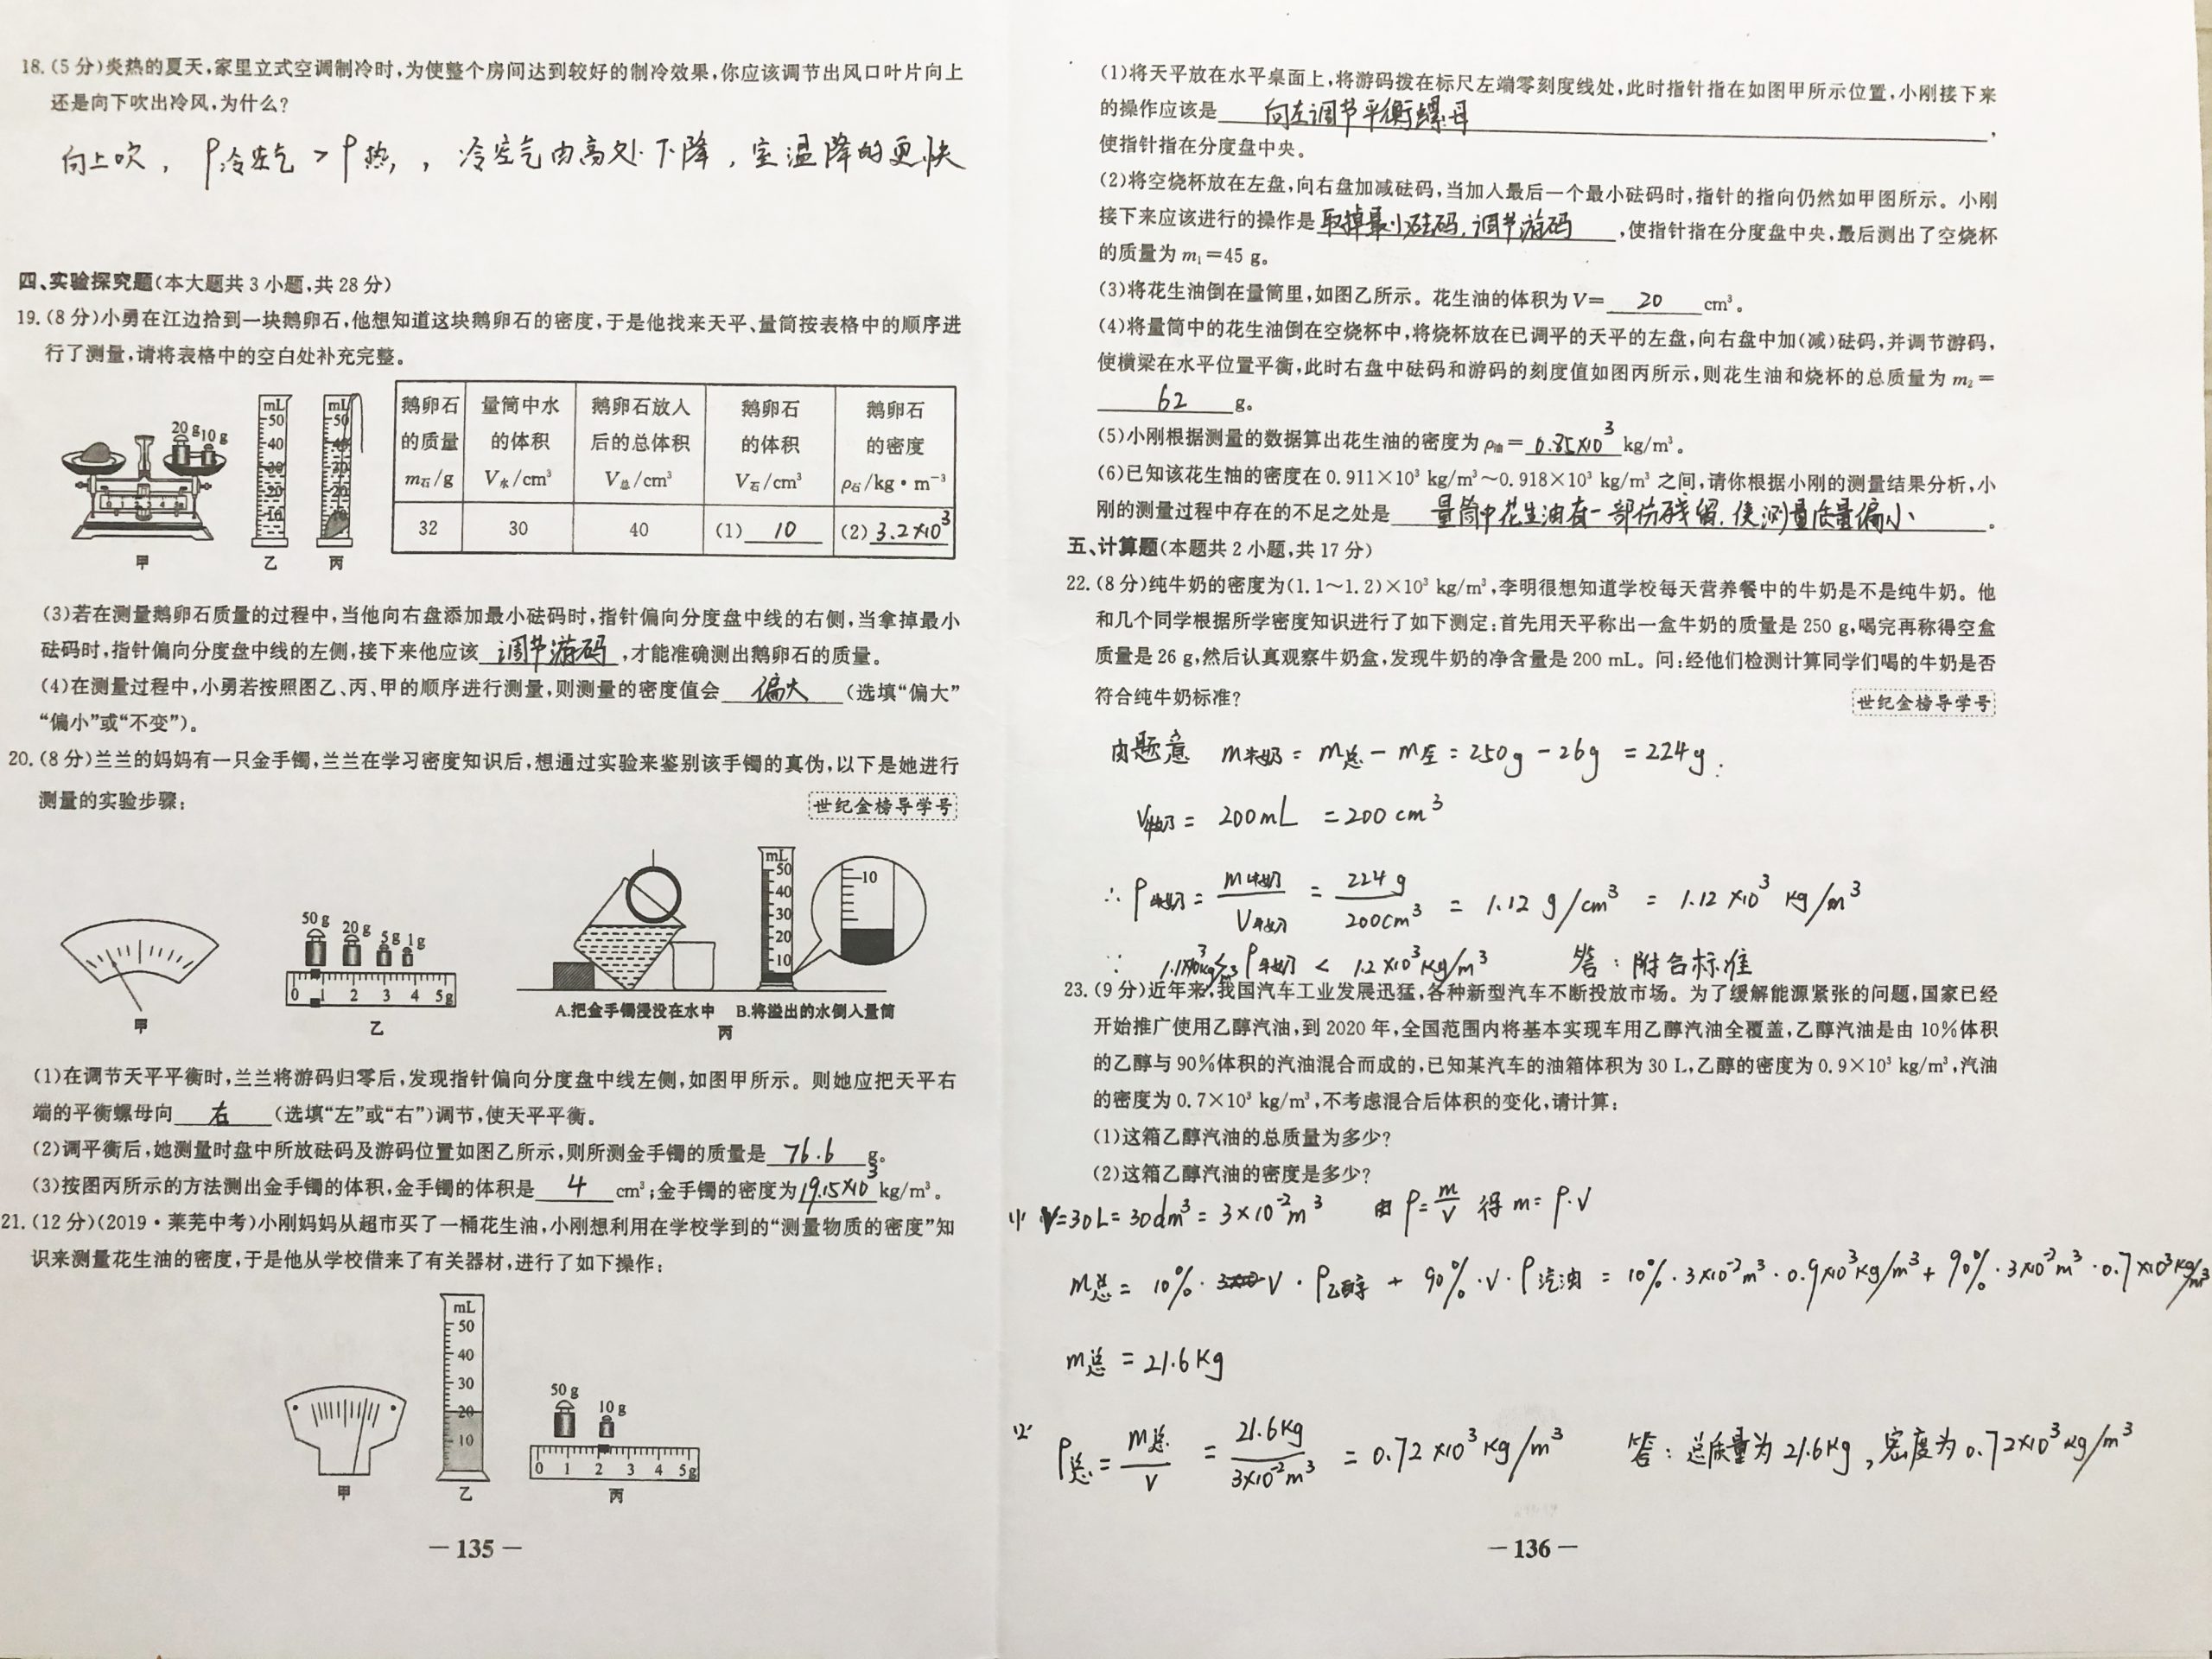 18.(5分)炎热的夏天,家里立式空调制冷时,为使整个房间达到较好的制冷效果,你应该调节出风口叶片向上
还是向下吹出冷风,为什么?
向上吹,ρ冷空气>ρ热,,冷空气由高处下降,室温降的更快
四、实验探究题(本大题共3小题,共28分)
19.(8分)小勇在江边拾到一块鹅卵石,他想知道这块鹅卵石的密度,于是他找来天平、量筒按表格中的顺序进
行了测量,请将表格中的空白处补充完整。
20 g 10 g
mL 50 40 30 20 10
mL 50 40 30 20 10
甲 乙 丙
鹅卵石 量筒中水 鹅卵石放入 鹅卵石 鹅卵石
的质量 的体积 后的总体积 的体积 的密度
m石/g V水/cm³ V总/cm³ V石/cm³ ρ石/kg·m⁻³
32 30 40 (1) 10 (2) 3.2×10³
(3)若在测量鹅卵石质量的过程中,当他向右盘添加最小砝码时,指针偏向分度盘中线的右侧,当拿掉最小
砝码时,指针偏向分度盘中线的左侧,接下来他应该 调节游码 ,才能准确测出鹅卵石的质量。
(4)在测量过程中,小勇若按照图乙、丙、甲的顺序进行测量,则测量的密度值会 偏大 (选填“偏大”
“偏小”或“不变”)。
20.(8分)兰兰的妈妈有一只金手镯,兰兰在学习密度知识后,想通过实验来鉴别该手镯的真伪,以下是她进行
测量的实验步骤: 世纪金榜导学号
50 g 20 g 5 g 1 g
0 1 2 3 4 5g
mL 50 40 30 20 10
10
A.把金手镯浸没在水中 B.将溢出的水倒入量筒
甲 乙 丙
(1)在调节天平平衡时,兰兰将游码归零后,发现指针偏向分度盘中线左侧,如图甲所示。则她应把天平右
端的平衡螺母向 右 (选填“左”或“右”)调节,使天平平衡。
(2)调平衡后,她测量时盘中所放砝码及游码位置如图乙所示,则所测金手镯的质量是 76.6 g。
(3)按图丙所示的方法测出金手镯的体积,金手镯的体积是 4 cm³;金手镯的密度为 19.15×10³ kg/m³。
21.(12分)(2019·莱芜中考)小刚妈妈从超市买了一桶花生油,小刚想利用在学校学到的“测量物质的密度”知
识来测量花生油的密度,于是他从学校借来了有关器材,进行了如下操作:
mL 50 40 30 20 10
50 g 10 g
0 1 2 3 4 5g
甲 乙 丙
— 135 —
(1)将天平放在水平桌面上,将游码拨在标尺左端零刻度线处,此时指针指在如图甲所示位置,小刚接下来
的操作应该是 向左调节平衡螺母 ,
使指针指在分度盘中央。
(2)将空烧杯放在左盘,向右盘加减砝码,当加入最后一个最小砝码时,指针的指向仍然如甲图所示。小刚
接下来应该进行的操作是 取掉最小砝码,调节游码 ,使指针指在分度盘中央,最后测出了空烧杯
的质量为 m₁=45 g。
(3)将花生油倒在量筒里,如图乙所示。花生油的体积为V= 20 cm³。
(4)将量筒中的花生油倒在空烧杯中,将烧杯放在已调平的天平的左盘,向右盘中加(减)砝码,并调节游码,
使横梁在水平位置平衡,此时右盘中砝码和游码的刻度值如图丙所示,则花生油和烧杯的总质量为 m₂=
62 g。
(5)小刚根据测量的数据算出花生油的密度为 ρ油= 0.85×10³ kg/m³。
(6)已知该花生油的密度在 0.911×10³ kg/m³~0.918×10³ kg/m³ 之间,请你根据小刚的测量结果分析,小
刚的测量过程中存在的不足之处是 量筒中花生油有一部份残留,使测量质量偏小 。
五、计算题(本题共2小题,共17分)
22.(8分)纯牛奶的密度为(1.1~1.2)×10³ kg/m³,李明很想知道学校每天营养餐中的牛奶是不是纯牛奶。他
和几个同学根据所学密度知识进行了如下测定:首先用天平称出一盒牛奶的质量是250 g,喝完再称得空盒
质量是26 g,然后认真观察牛奶盒,发现牛奶的净含量是200 mL。问:经他们检测计算同学们喝的牛奶是否
符合纯牛奶标准? 世纪金榜导学号
由题意 m牛奶 = m总 - m空 = 250g - 26g = 224g.
V牛奶 = 200mL = 200cm³
∴ ρ牛奶 = m牛奶/V牛奶 = 224g/200cm³ = 1.12 g/cm³ = 1.12×10³ kg/m³
∵ 1.1×10³kg/m³ < ρ牛奶 < 1.2×10³kg/m³ 答:附合标准
23.(9分)近年来,我国汽车工业发展迅猛,各种新型汽车不断投放市场。为了缓解能源紧张的问题,国家已经
开始推广使用乙醇汽油,到2020年,全国范围内将基本实现车用乙醇汽油全覆盖,乙醇汽油是由10%体积
的乙醇与90%体积的汽油混合而成的,已知某汽车的油箱体积为30 L,乙醇的密度为0.9×10³ kg/m³,汽油
的密度为0.7×10³ kg/m³,不考虑混合后体积的变化,请计算:
(1)这箱乙醇汽油的总质量为多少?
(2)这箱乙醇汽油的密度是多少?
(1) V=30L=30dm³=3×10⁻²m³ 由ρ=m/V 得 m=ρ·V
m总 = 10%·V·ρ乙醇 + 90%·V·ρ汽油 = 10%·3×10⁻²m³·0.9×10³kg/m³ + 90%·3×10⁻²m³·0.7×10³kg/m³
m总 = 21.6kg
(2) ρ总 = m总/V = 21.6kg/3×10⁻²m³ = 0.72×10³kg/m³ 答:总质量为21.6kg,密度为0.72×10³kg/m³
— 136 —